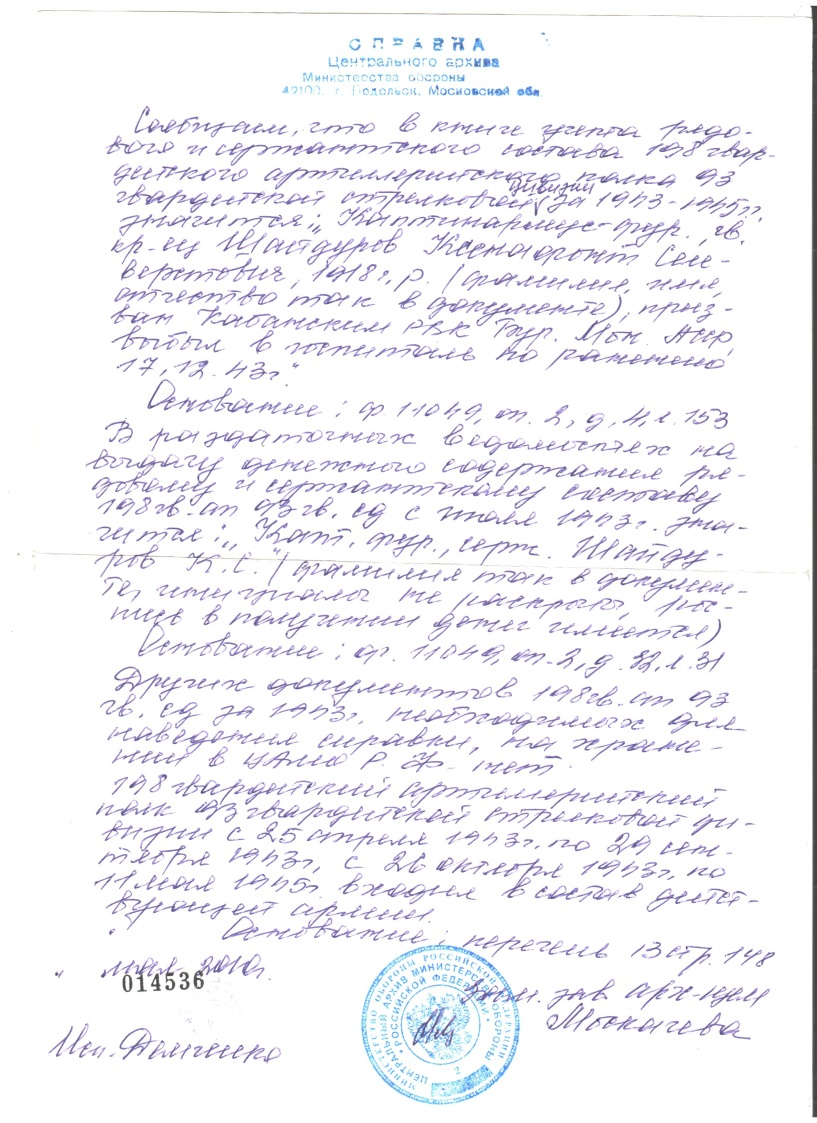 СПРАВКА
Центрального архива
Министерства обороны
42100, г. Подольск, Московской обл.
Сообщаем, что в книге учета рядо-
вого и сержантского состава 198 гвар-
дейского артиллерийского полка 93
гвардейской стрелковой дивизии за 1943-1945гг.
значится: „Каптинармус-фур. гв.
кр-ец Шайдуров Ксенофонт Сели-
верстович, 1918г.р. (фамилия, имя,
отчество так в документе), приз-
ван Кабанским РВК Бур. Мон. АССР
выбыл в госпиталь по ранению
17.12.43г."
Основание: ф 11049, оп. 2, д. 4, л. 153
В раздаточных ведомостях на
выдачу денежного содержания ря-
довому и сержантскому составу
198гв. ап 93гв. сд с июля 1943г. зна-
чится: „Капт. фур., серж. Шайду-
ров К.С." (фамилия так в докумен-
те, инициалы не раскрыты, рос-
пись в получении денег имеется)
Основание: ф. 11049, оп. 2, д. 32, л. 31
Других документов 198гв. ап 93
гв. сд за 1943г. необходимых для
наведения справки, на хране-
нии в ЦАМО Р.Ф. нет.
198 гвардейский артиллерийский
полк 93 гвардейской стрелковой ди-
визии с 25 апреля 1943г. по 29 сен-
тября 1943г., с 26 октября 1943г. по
11 мая 1945г. входил в состав дейст-
вующей армии.
Основание: перечень 13 стр. 148
" " мая 2010г.
014536
Зам. зав арх-щем
Москачева
Исп. Демченко
МИНИСТЕРСТВО ОБОРОНЫ РОССИЙСКОЙ ФЕДЕРАЦИИ
ЦЕНТРАЛЬНЫЙ АРХИВ МИНИСТЕРСТВА ОБОРОНЫ
РОССИЙСКОЙ ФЕДЕРАЦИИ
2